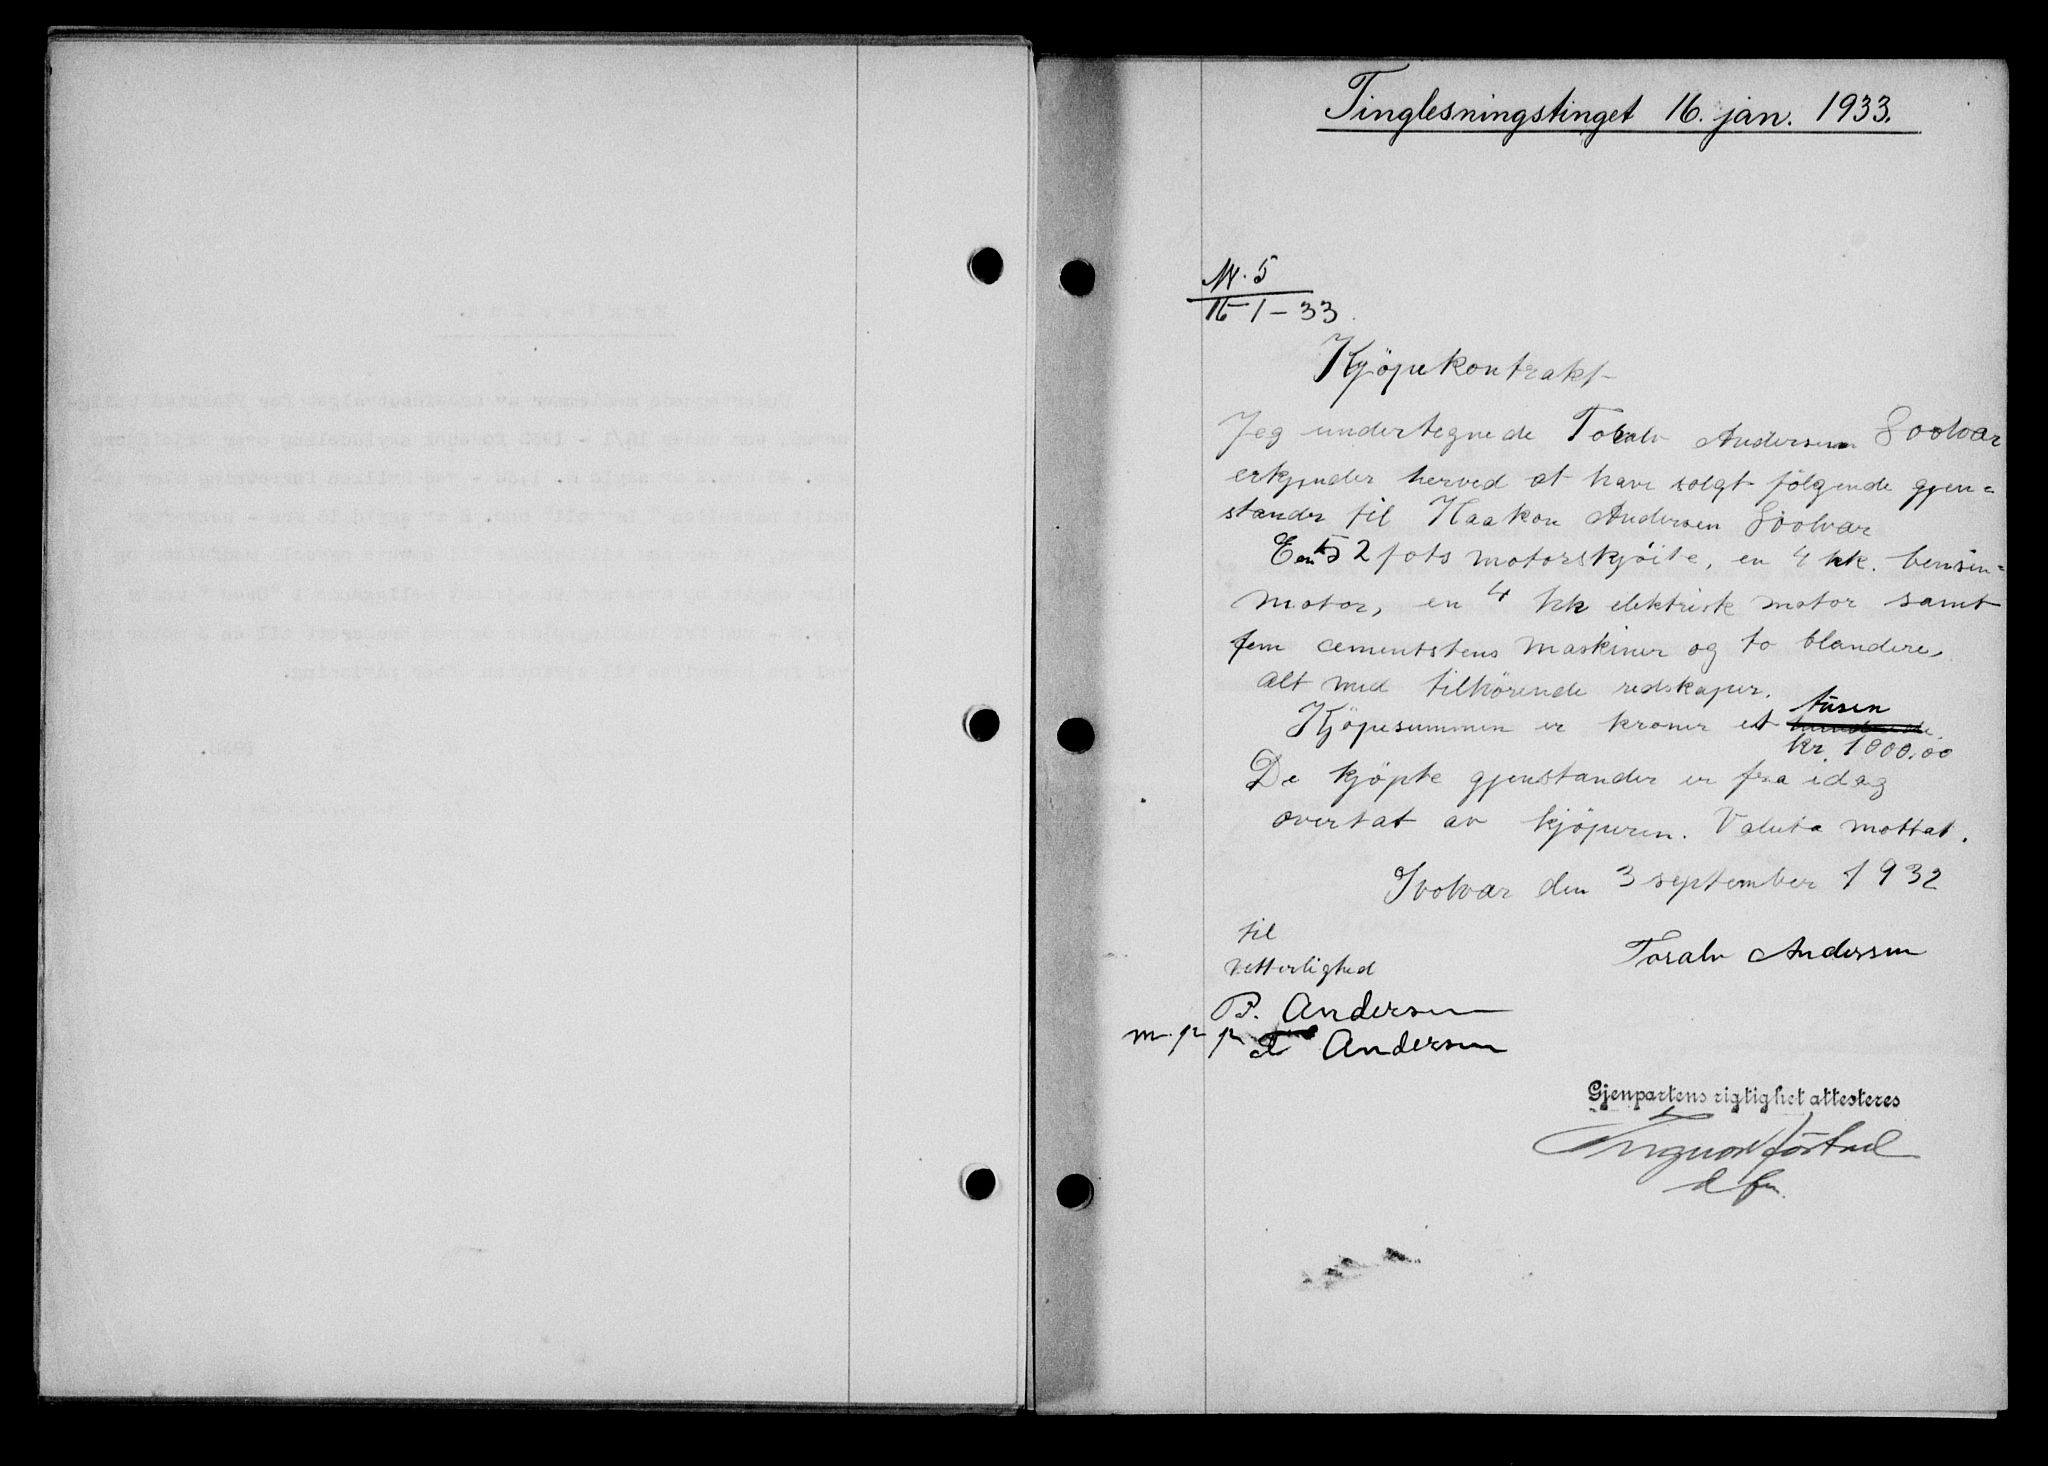 Tinglesningstinget 16. jan. 1933.
Nr. 5
16 1 - 33.
Kjöpekontrakt
Jeg undertegnede Toralv Andersen Svolvær
erkjender herved at have solgt følgende gjen=
stander til Haakon Andersen Svolvær
En 52 fots motorskjöite, en 4 hk. bensin=
motor, en 4 hk elektrisk motor samt
fem cementstens maskiner og to blandere,
alt med tilhörende redskaper.
tusen
Kjöpesummen er kroner et hundrede.
kr. 1000.00
De kjöpte gjenstander er fra idag
overtat av kjöperen. Valuta mottat.
Svolvær den 3 september 1932
til
vitterlighed
Toralv Andersen
P. Andersen
m. p p Andersen
Gjenpartens rigtighet attesteres